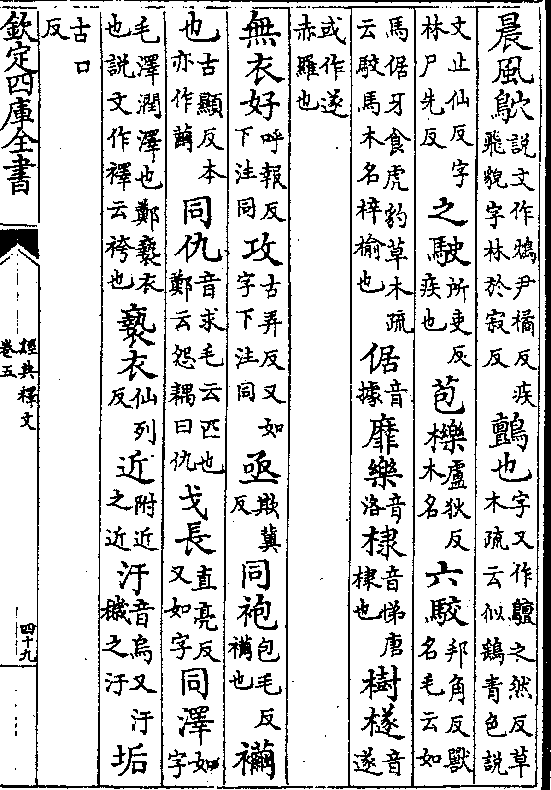 晨風鴥說文作鴪尹橘反疾飛貌字林於寂反鸇也字又作鸇之然反草木疏云似鷂青色說
文止仙反字林尸先反之駛所吏反疾也苞櫟盧狄反木名六駮邦角反獸名毛云如
馬倨牙食虎豹草木疏云駮馬木名梓榆也倨音據靡樂音洛棣音悌唐棣也樹檖音遂
或作遂赤羅也
無衣好呼報反下注同攻古弄反又如字下注同亟欺冀反同袍包毛反襺也襺
也古顯反本亦作繭同仇音求毛云匹也鄭云怨耦曰仇戈長直亮反又如字同澤如字
毛澤潤澤也鄭褻衣也說文作襗云袴也褻衣仙列反近附近之近汙音烏又汙穢之汙垢
古口反
欽定四庫全書
經典釋文
卷五
四十九